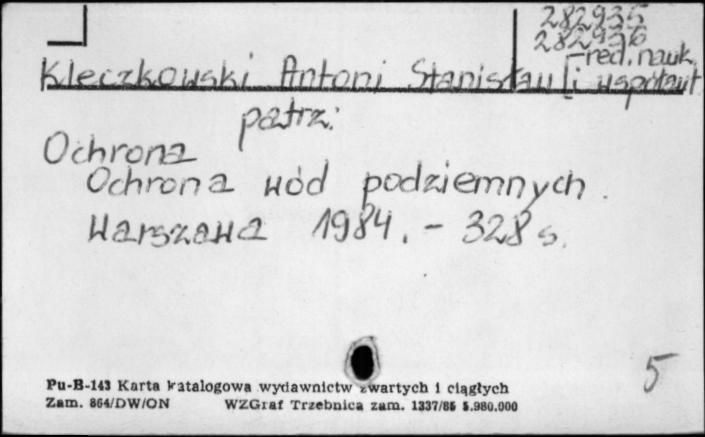 282935
282936
Kleczkowski Antoni Stanisław [red. nauk. i współaut
patrz:
Ochrona
Ochrona wód podziemnych.
Warszawa 1984. - 328 s.
5
Pu-B-143 Karta katalogowa wydawnictw zwartych i ciągłych
Zam. 864/DW/ON WZGraf Trzebnica zam. 1337/85 5.980.000